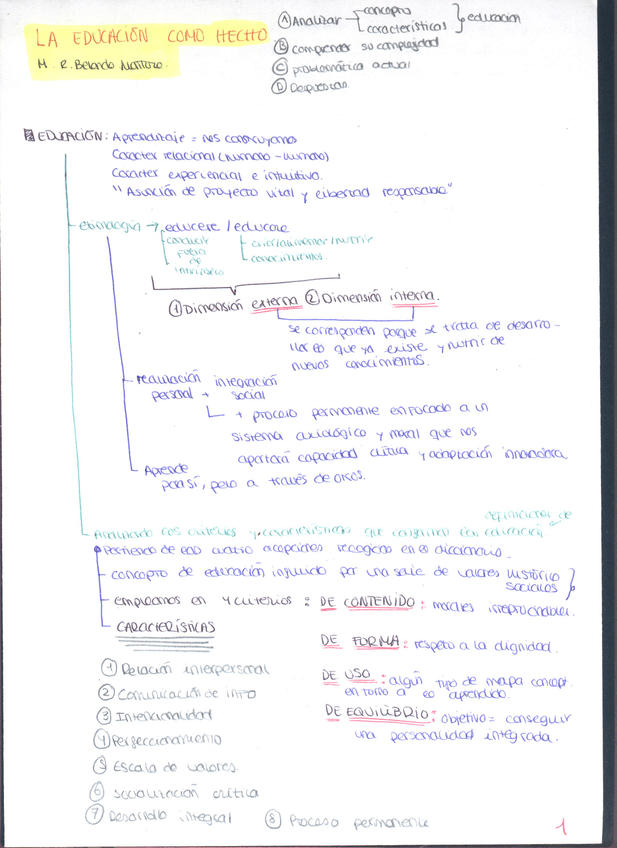 LA EDUCACIÓN COMO HECHO
M. R. Belando
Ⓐ Analizar
concepto
características
educación
Ⓑ comprender su complejidad
Ⓒ problemática actual
Ⓓ
EDUCACIÓN: Aprendizaje = nos construyamos
Carácter relacional (humano - humano)
Carácter experiencial e intuitivo.
"Asunción de proyecto vital y libertad responsable"
etimología → educere / educare
conducir fuera de
criar/alimentar/nutrir
conocimientos.
① Dimensión externa ② Dimensión interna.
se corresponden porque se trata de desarro-
llar lo que ya existe y nutrir de
nuevos conocimientos.
realización integración
personal + social
+ proceso permanente enfocado a un
sistema axiológico y moral que nos
aportará capacidad crítica y adaptación innovadora
Aprende
para sí, pero a través de otros.
definiciones de
Analizando los criterios y características que la educación
Partiendo de las cuatro acepciones recogidas en el diccionario.
concepto de educación influido por una serie de valores histórico
sociales
empleamos en 4 criterios: DE CONTENIDO: morales irreprochables.
CARACTERÍSTICAS
DE FORMA: respeto a la dignidad.
DE USO: algún tipo de mapa concept.
en torno a lo aprendido.
DE EQUILIBRIO: objetivo = conseguir
una personalidad integrada.
① Relación interpersonal
② Comunicación de info
③ Intencionalidad
④ Perfeccionamiento
⑤ Escala de valores.
⑥ Socialización crítica
⑦ Desarrollo integral
⑧ Proceso permanente
1